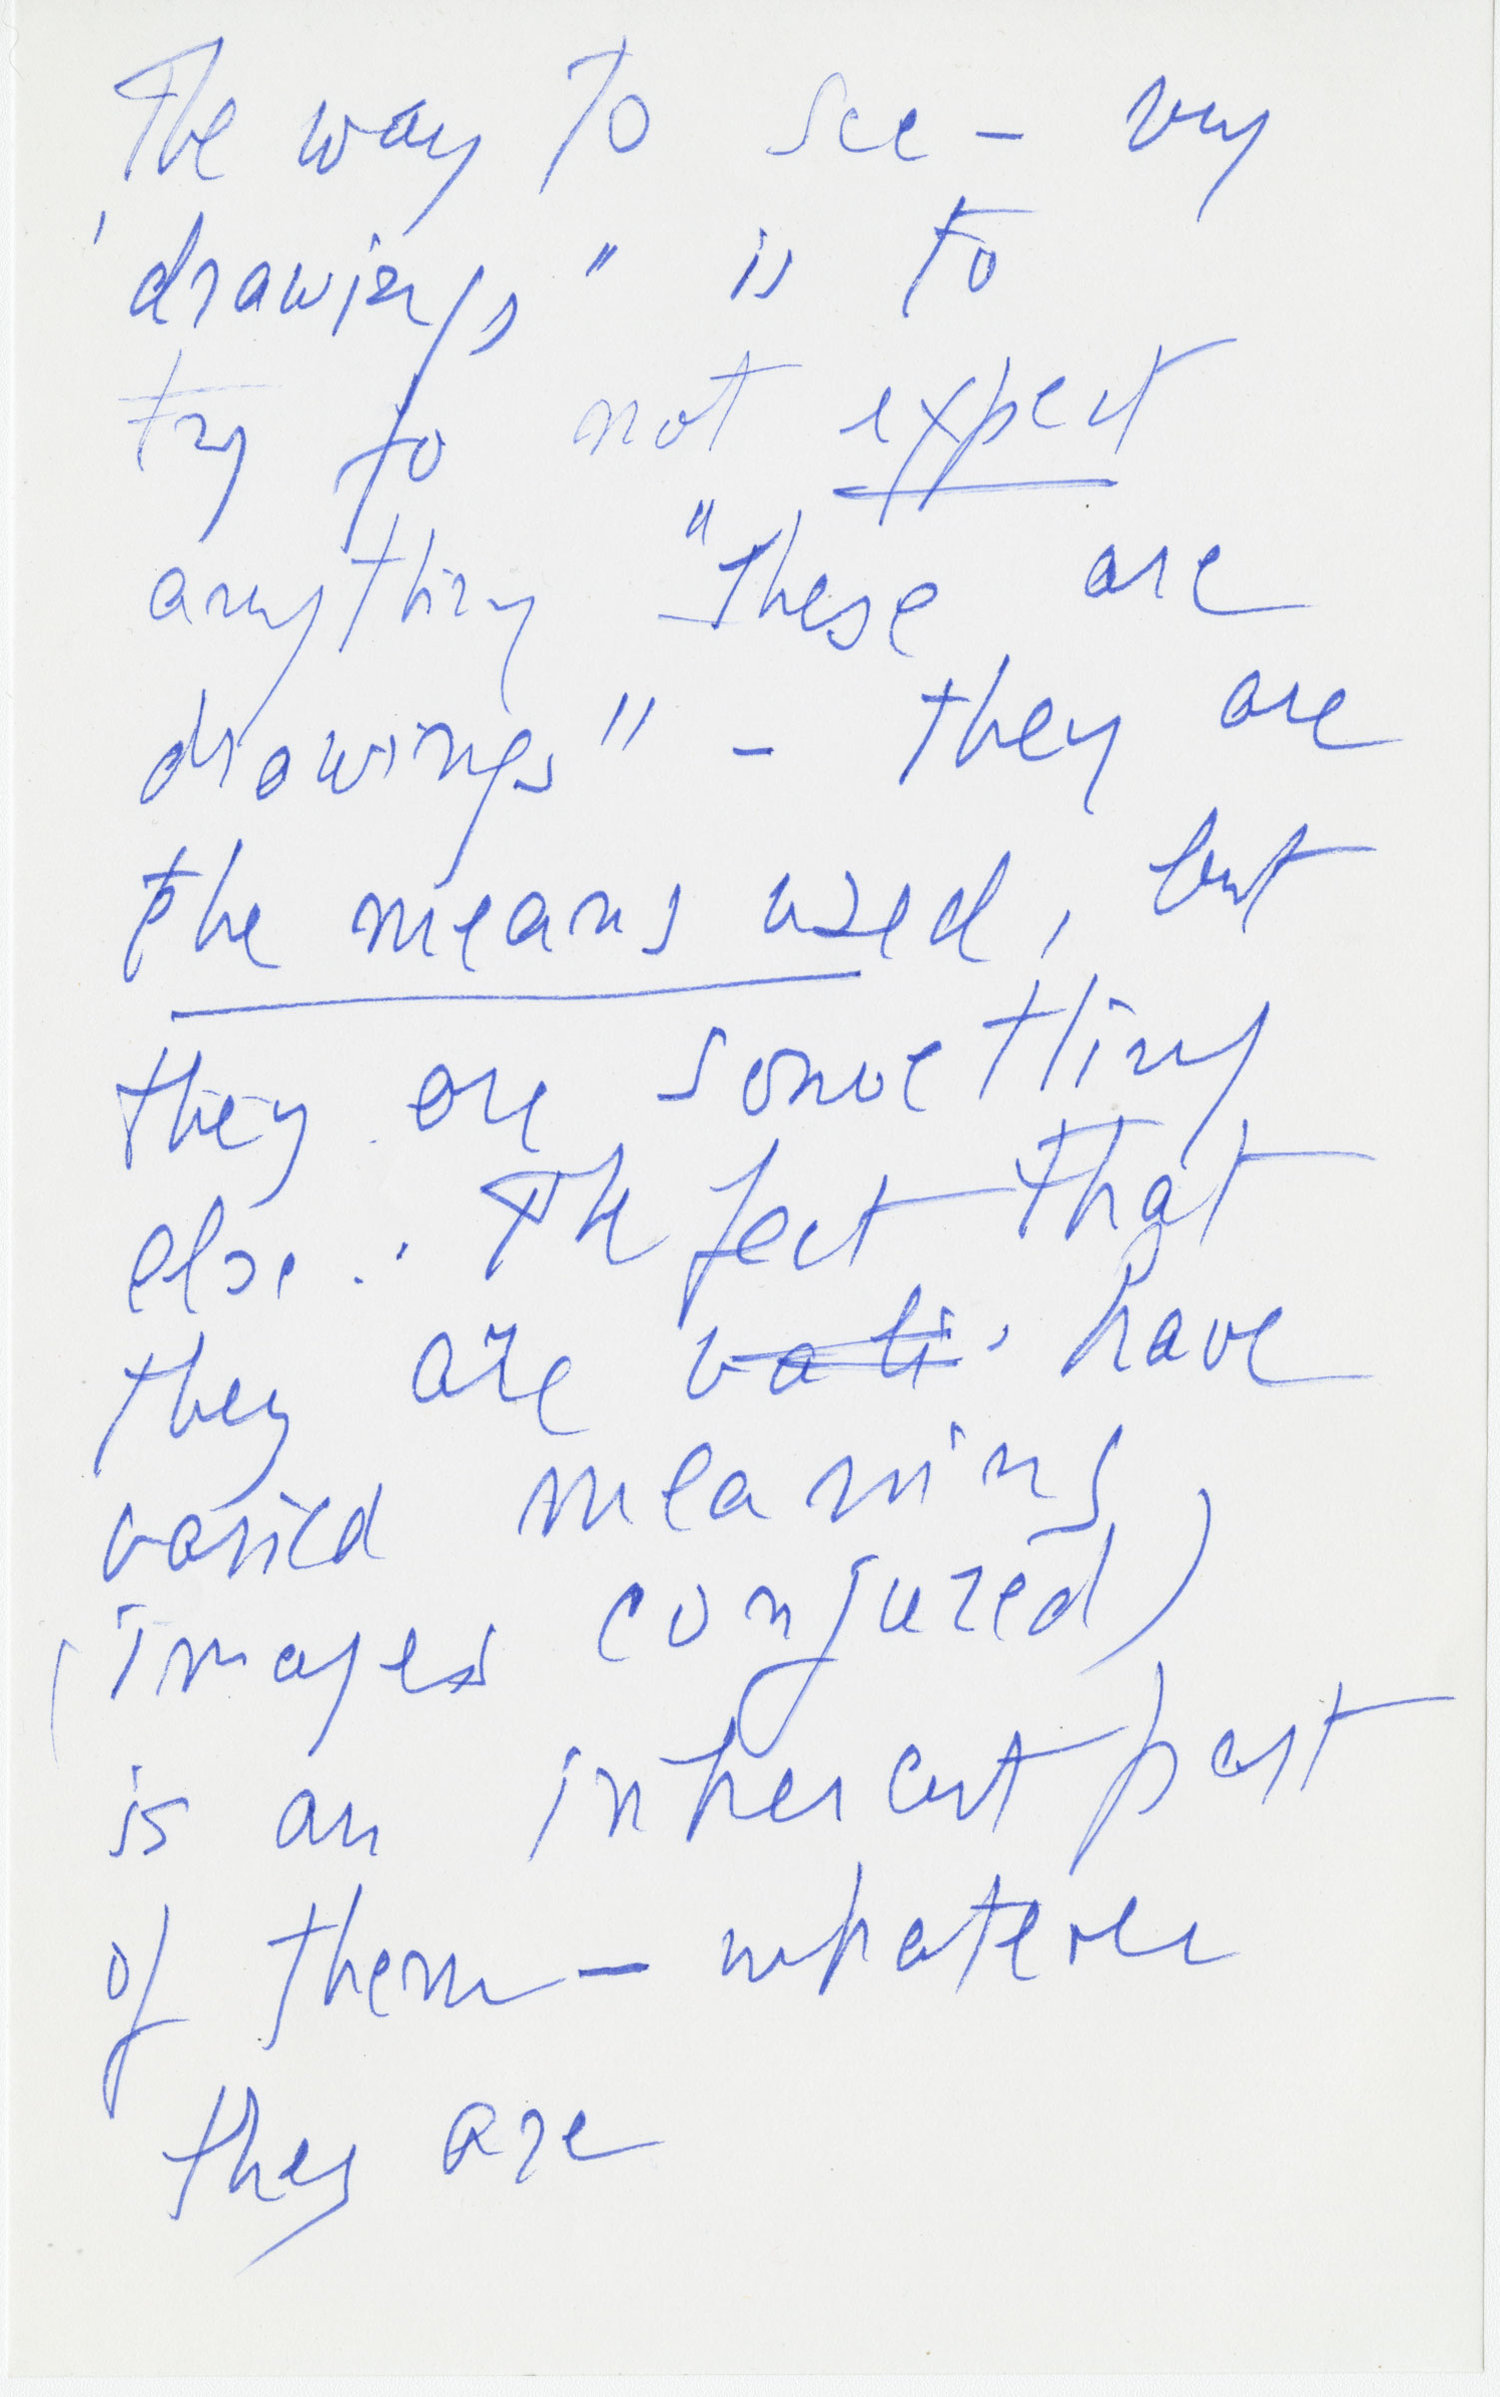 The way to see - my
'drawings" is to
try to not expect
anything "These are
drawings" - they are
the means used, but
they are something
else.. The fact that
they are vari have
varied meanings
(images conjured)
is an inherent part
of them - whatever
they are